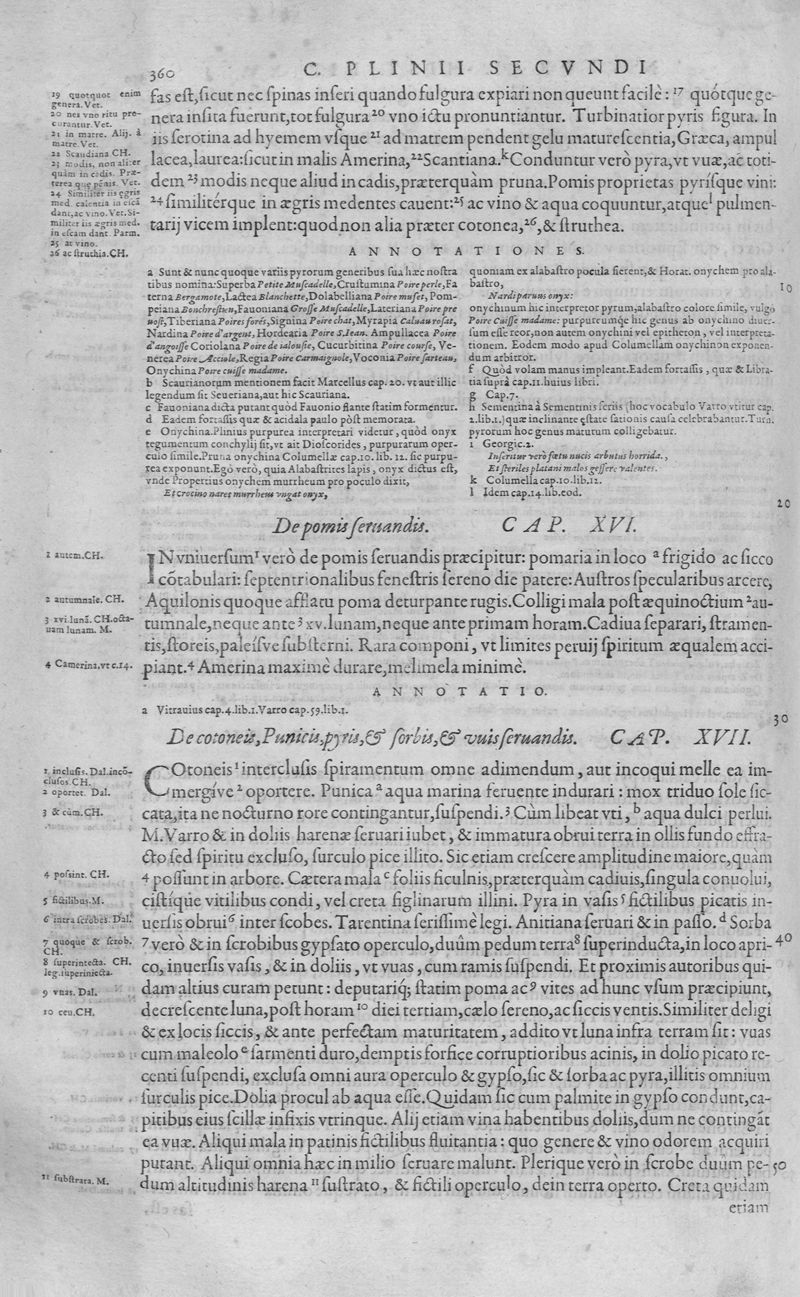 360
C. PLINII SECVNDI
19 quotquot enim
genera. Vet.
20 nei vno ritu pre-
curantur. Vet.
21 in matre. Alij. à
matre. Vet.
22 Scaudiana. CH.
23 modis, non aliter
quàm in cadis. Præ-
terea quę pęnis. Vet.
24 Similiter iis ęgris
med. calentia in eicā
dant, ac vino. Vet. Si-
militer iis ægris med.
in escam dant. Parm.
25 at vino.
26 ac struthia. CH.
fas est, sicut nec spinas inseri quando fulgura expiari non queunt facilè: 17 quótque ge-
nera insita fuerunt, tot fulgura 20 vno ictu pronuntiantur. Turbinatior pyris figura. In
iis serotina ad hyemem vsque 21 ad matrem pendent gelu maturescentia, Græca, ampul
lacea, laurea: sicut in malis Amerina, 22 Scantiana. k Conduntur verò pyra, vt vuæ, ac toti-
dem 23 modis neque aliud in cadis, præterquàm pruna. Pomis proprietas pyrísque vini:
24 similitérque in ægris medentes cauent: 25 ac vino & aqua coquuntur, atque l pulmen-
tarij vicem implent: quod non alia præter cotonea, 26, & struthea.
ANNOTATIONES.
a Sunt & nunc quoque variis pyrorum generibus sua hæc nostra
tibus nomina: Superba Petite Muscadelle, Crustumina Poire perle, Fa
lerna Bergamote, Lactea Blanchette, Dolabelliana Poire muset, Pom-
peiana Bonchrestien, Fauoniana Grosse Muscadelle, Lateriana Poire pre
uost, Tiberiana Poires forés, Signina Poire chat, Myrapia Caluau rosat,
Nardina Poire d'argent, Hordearia Poire S. Jean. Ampullacea Poire
d'angoisse Coriolana Poire de ialousie, Cucurbitina Poire course, Ve-
nerea Poire Acciole, Regia Poire Carmaignole, Voconia Poire sarteau,
Onychina Poire cuisse madame.
b Scaurianorum mentionem facit Marcellus cap. 20. vt aut illic
legendum sit Seueriana, aut hic Scauriana.
c Fauoniana dicta putant quòd Fauonio flante statim formentur.
d Eadem fortassis quæ & acidala paulo pòst memorata.
e Onychina. Plinius purpurea interpretari videtur, quòd onyx
tegumentum conchylij sit, vt ait Dioscorides, purpurarum oper-
culo simile. Pruna onychina Columellæ cap. 10. lib. 12. sic purpu-
rea exponunt. Egò verò, quia Alabastrites lapis, onyx dictus est,
vnde Propertius onychem murrheum pro poculo dixit,
Et crocino nares murrheus vngat onyx,
quoniam ex alabastro pocula fierent, & Horat. onychem pro ala-
bastro,
Nardi paruus onyx:
onychinum hic interpretor pyrum, alabastro colore simile, vulgo
Poire Cuisse madame: purpureumqé hic genus ab onychino diuer-
sum esse reor, non autem onychini vel epitheton, vel interpreta-
tionem. Eodem modo apud Columellam onychinon exponen-
dum arbitror.
f Quòd volam manus impleant. Eadem fortassis, quæ & Libra-
lia suprà cap. 11. huius libri.
g Cap. 7.
h Sementina à Sementinis feriis (hoc vocabulo Varro vtitur cap.
2. lib. 1.) quæ inclinante ęstate sationis causa celebrabantur. Tum
pyrorum hoc genus maturum colligebatur.
i Georgic. 2.
Inseritur verò fœtu nucis arbutus horrida.,
Et steriles platani malos gessere valentes.
k Columella cap. 10. lib. 12.
l Idem cap. 14. lib. eod.
10
20
De pomis seruandis. CAP. XVI.
1 autem. CH.
2 autumnale. CH.
3 xvi. lunā. CH. octa-
uam lunam. M.
4 Camerina, vt c. 14.
IN vniuersum 1 verò de pomis seruandis præcipitur: pomaria in loco a frigido ac sicco
cōtabulari: septentrionalibus fenestris sereno die patere: Austros specularibus arcere,
Aquilonis quoque afflatu poma deturpante rugis. Colligi mala post æquinoctium 2 au-
tumnale, neque ante 3 xv. lunam, neque ante primam horam. Cadiua separari, stramen-
tis, storeis, paleísve substerni. Rara componi, vt limites peruij spiritum æqualem acci-
piant. 4 Amerina maximè durare, melimela minimè.
ANNOTATIO.
a Vitrauius cap. 4. lib. 1. Varro cap. 59. lib. 1.
30
De cotoneis, Punicis, pyris, & sorbis, & vuis seruandis. CAP. XVII.
1 inclusis. Dal. incō-
clusos. CH.
2 oportet. Dal.
3 & cùm. CH.
4 possint. CH.
5 fictilibus. M.
6 intra scrobes. Dal.
7 quoque & scrob.
CH.
8 superintecta. CH.
leg. superiniecta.
9 vuas. Dal.
10 ceu. CH.
11 substrata. M.
COtoneis 1 interclusis spiramentum omne adimendum, aut incoqui melle ea im-
mergíve 2 oportere. Punica a aqua marina feruente indurari: mox triduo sole sic-
cata, ita ne nocturno rore contingantur, suspendi. 3 Cùm libeat vti, b aqua dulci perlui.
M. Varro & in doliis harenæ seruari iubet, & immatura obrui terra in ollis fundo effra-
cto sed spiritu excluso, surculo pice illito. Sic etiam crescere amplitudine maiore, quam
4 possunt in arbore. Cætera mala c foliis ficulnis, præterquàm cadiuis, singula conuolui,
cistísque vitilibus condi, vel creta figlinarum illini. Pyra in vasis 5 fictilibus picatis in-
uersis obrui 6 inter scobes. Tarentina serissimè legi. Anitiana seruari & in passo. d Sorba
7 verò & in scrobibus gypsato operculo, duûm pedum terra 8 superinducta, in loco apri- 40
co, inuersis vasis, & in doliis, vt vuas, cum ramis suspendi. Et proximis autoribus qui-
dam altius curam petunt: deputaríq; statim poma ac 9 vites ad hunc vsum præcipiunt,
decrescente luna, post horam 10 diei tertiam, cælo sereno, ac siccis ventis. Similiter deligi
& ex locis siccis, & ante perfectam maturitatem, addito vt luna infra terram sit: vuas
cum maleolo e sarmenti duro, demptis forfice corruptioribus acinis, in dolio picato re-
centi suspendi, exclusa omni aura operculo & gypso, sic & sorba ac pyra, illitis omnium
surculis pice. Dolia procul ab aqua esse. Quidam sic cum palmite in gypso condunt, ca-
pitibus eius scillæ infixis vtrinque. Alij etiam vina habentibus doliis, dum ne contingāt
ea vuæ. Aliqui mala in patinis fictilibus fluitantia: quo genere & vino odorem acquiri
putant. Aliqui omnia hæc in milio seruare malunt. Plerique verò in scrobe duûm pe- 50
dum altitudinis harena 11 sustrato, & fictili operculo, dein terra operto. Creta quidam
etiam